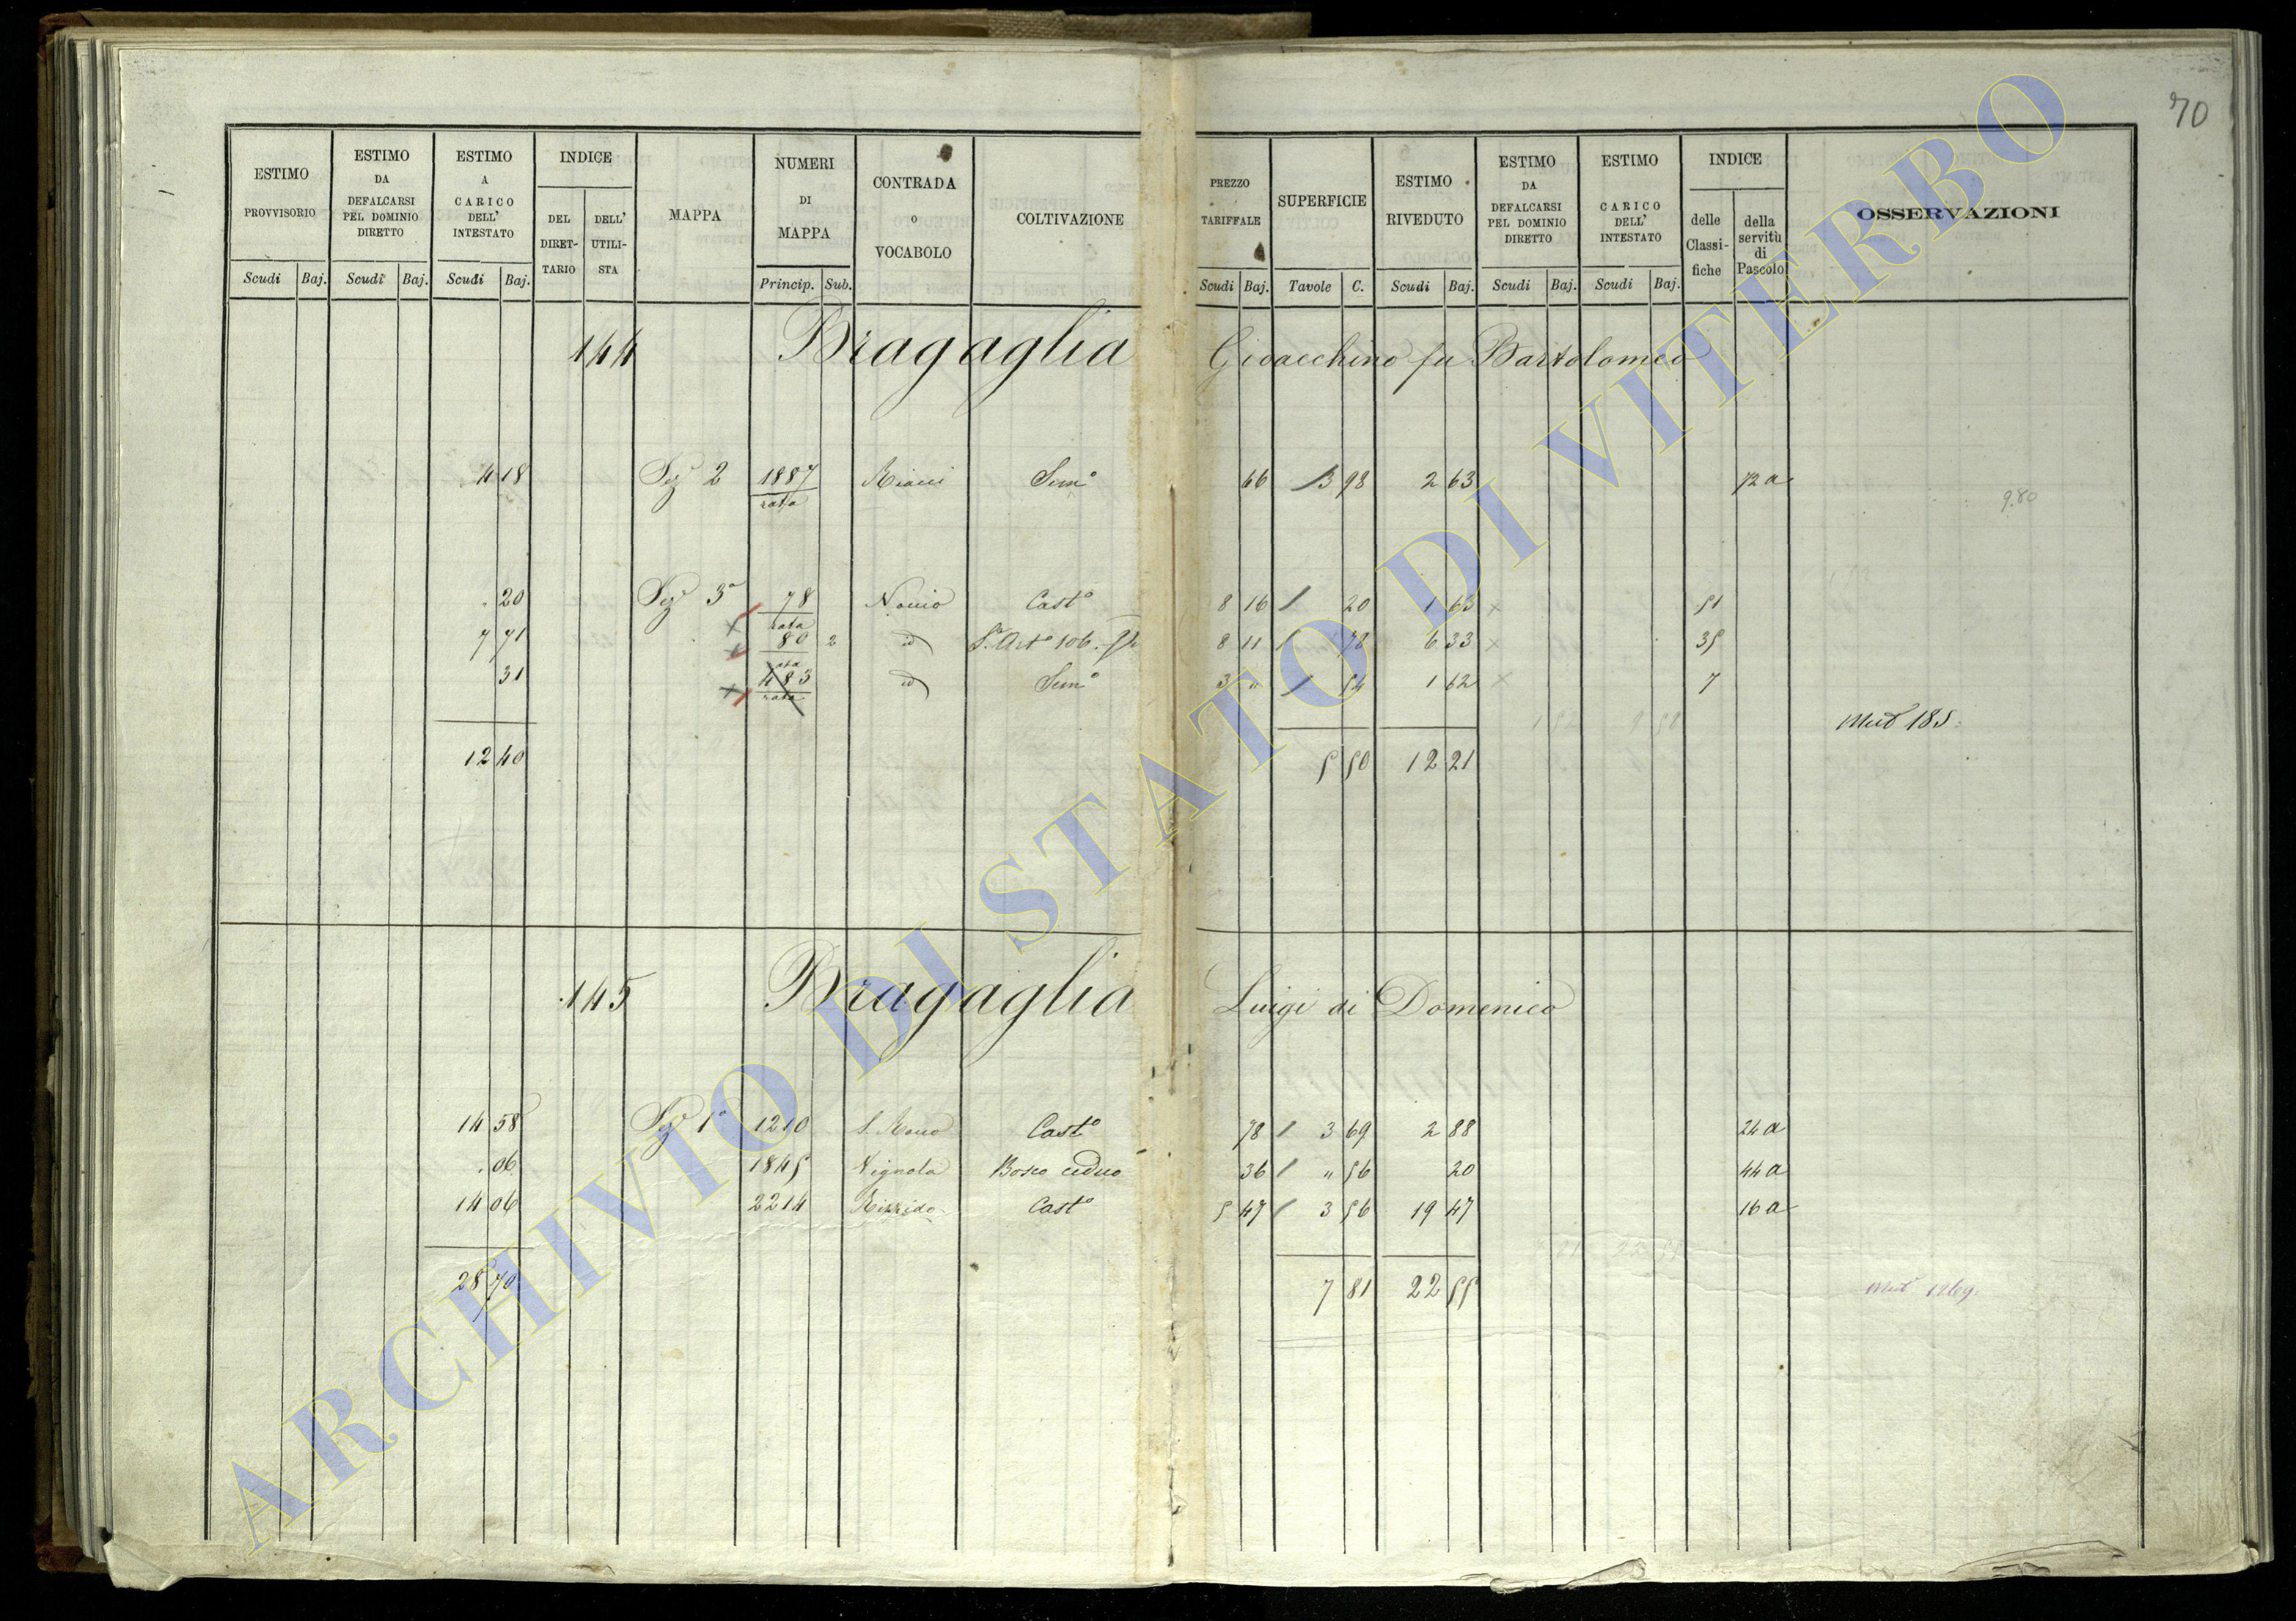 70
ESTIMO PROVVISORIO Scudi Baj.
ESTIMO DA DEFALCARSI PEL DOMINIO DIRETTO Scudi Baj.
ESTIMO A CARICO DELL' INTESTATO Scudi Baj.
INDICE DEL DIRET- TARIO DELL' UTILI- STA
MAPPA
NUMERI DI MAPPA Princip. Sub.
CONTRADA O VOCABOLO
COLTIVAZIONE
PREZZO TARIFFALE Scudi Baj.
SUPERFICIE Tavole C.
ESTIMO RIVEDUTO Scudi Baj.
ESTIMO DA DEFALCARSI PEL DOMINIO DIRETTO Scudi Baj.
ESTIMO A CARICO DELL' INTESTATO Scudi Baj.
INDICE delle Classi- fiche della servitù di Pascolo
OSSERVAZIONI
144 Bragaglia Gioacchino fu Bartolomeo
4 18 Sez 2 1887 rata Semo 66 / 3 98 2 63 72 a
9.80
20 Sez 3a 78 rata Casto 8 16 / 20 1 63 x 51
7 71 x 80 rata 2 id 8 11 / 78 6 33 x 35
31 x 483 rata id Semo 3 " / 54 1 62 x 7
Mut 185
12 40 5 50 12 21
145 Bragaglia Luigi di Domenico
14 58 Sez 1a 1210 S. Rocco Casto 78 / 3 69 2 88 24 a
06 1845 Vignola Bosco ceduo 36 / " 56 20 44 a
14 06 2214 Casto 5 47 / 3 56 19 47 16 a
28 70 7 81 22 55
Mut 1269
ARCHIVIO DI STATO DI VITERBO